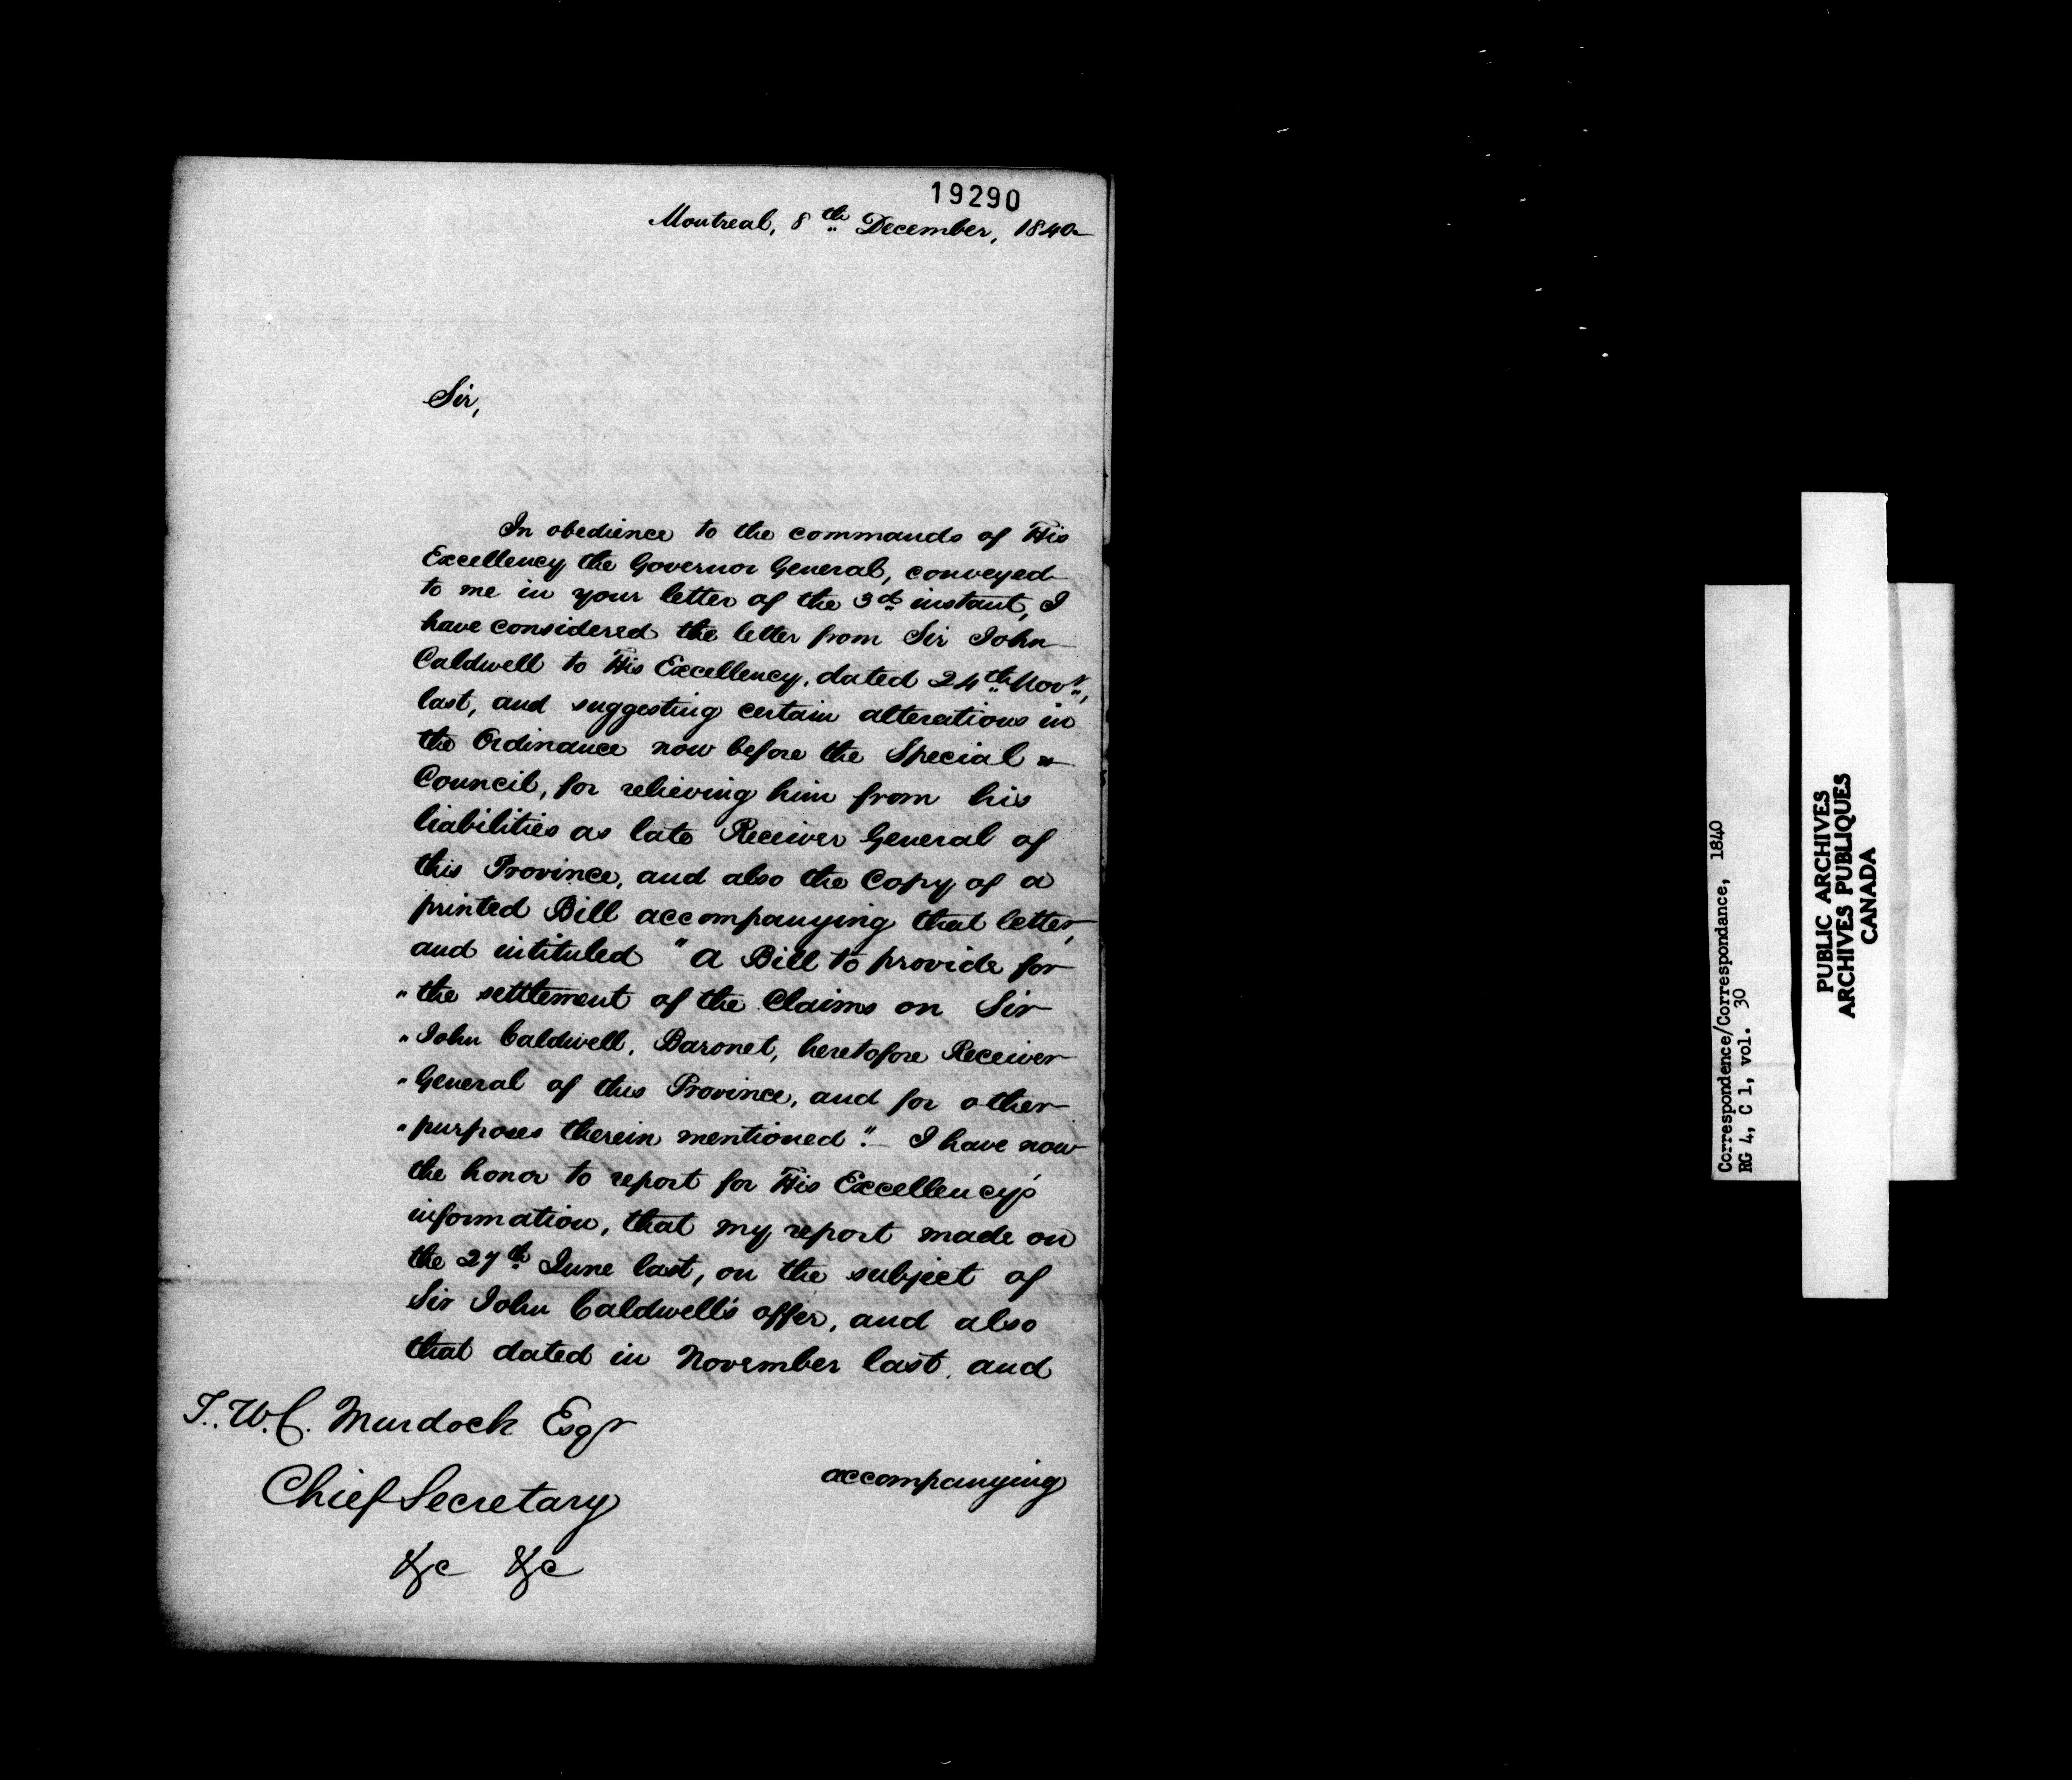 19290
Montreal, 8th December, 1840
Sir,
In obedience to the commands of His
Excellency the Governor General, conveyed
to me in your letter of the 3d instant, I
have considered the letter from Sir John
Caldwell to His Excellency, dated 24th Novr,
last, and suggesting certain alterations in
the Ordinance now before the Special
Council, for relieving him from his
liabilities as late Receiver General of
this Province, and also the Copy of a
printed Bill accompanying that letter,
and intituled "A Bill to provide for
"the settlement of the Claims on Sir
"John Caldwell, Baronet, heretofore Receiver
"General of this Province, and for other
"purposes therein mentioned". – I have now
the honor to report for His Excellency's
information, that my report made on
the 27th June last, on the subject of
Sir John Caldwell's offer, and also
that dated in November last, and
accompanying
T. W. C. Murdoch Esqr
Chief Secretary
&c &c
Correspondence/Correspondance, 1840
RG 4, C 1, vol. 30
PUBLIC ARCHIVES
ARCHIVES PUBLIQUES
CANADA